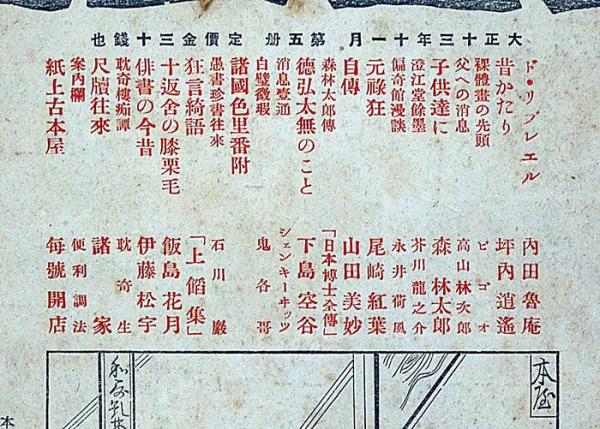 大正十三年十一月 第五册 定價金三十錢也
ド・リブレエル 内田魯庵
昔かたり 坪内逍遙
裸體畫の先頭 ビゴオ
父への消息 高山林次郎
子供達に 森林太郎
澄江堂餘墨 芥川龍之介
偏奇館漫談 永井荷風
元祿狂 尾崎紅葉
自傳 山田美妙
森林太郎傳 「日本博士全傳」
德弘太無のこと 下島空谷
消息壹通 シェンキーヰッツ
白璧微瑕 鬼各哥
諸國色里番附
愚書珍書往來 石川巖
狂言綺語 「上餡集」
十返舍の膝栗毛 飯島花月
俳書の今昔 伊藤松宇
耽奇樓痴譚 耽奇生
尺牘往來 諸家
案内欄 便利調法
紙上古本屋 每號開店
本屋
本